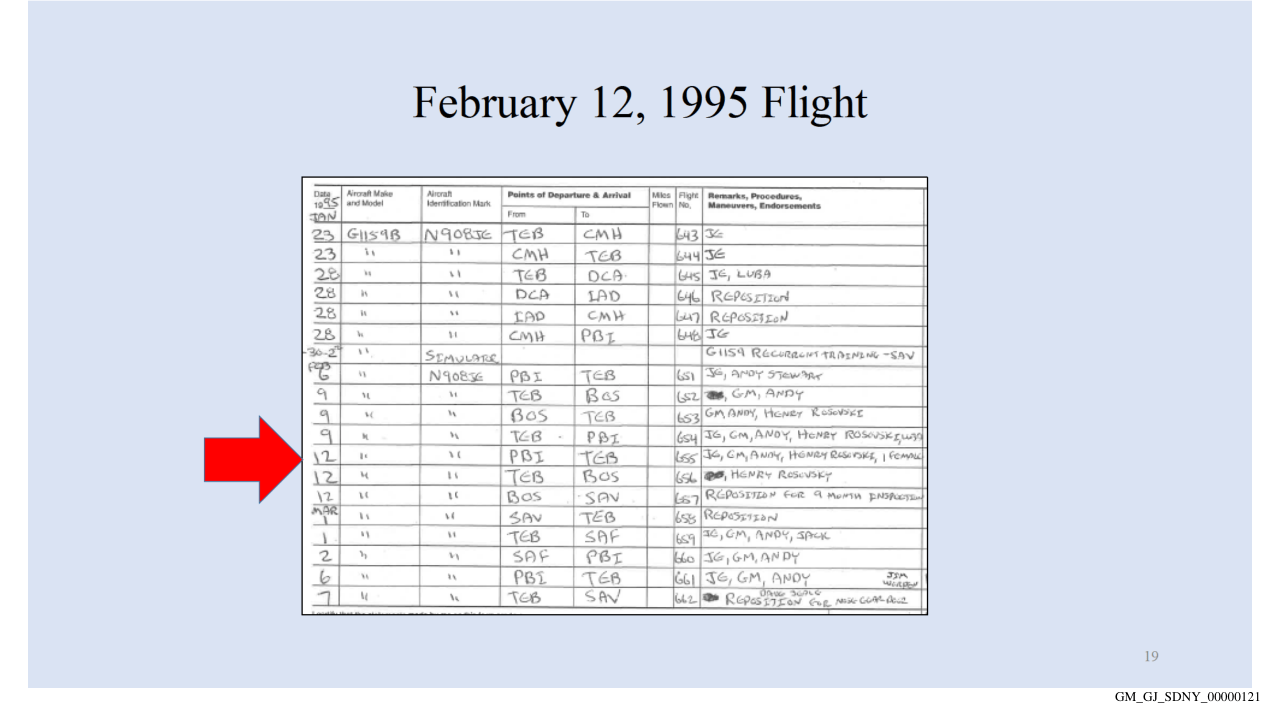 February 12, 1995 Flight
Date Aircraft Make Aircraft Points of Departure & Arrival Miles Flight Remarks, Procedures,
1995 and Model Identification Mark Flown No. Maneuvers, Endorsements
JAN From To
23 G1159B N908JE TEB CMH 643 JE
23 " " CMH TEB 644 JE
28 " " TEB DCA 645 JE, LUBA
28 " " DCA IAD 646 REPOSITION
28 " " IAD CMH 647 REPOSITION
28 " " CMH PBI 648 JE
-30-2 " G1159 RECURRENT TRAINING -SAV
FEB
6 " N908JE PBI TEB 651 JE, ANDY STEWART
9 " " TEB BOS 652 , GM, ANDY
9 " " BOS TEB 653 GM ANDY, HENRY ROSOVSKI
9 " " TEB - PBI 654 JE, GM, ANDY, HENRY ROSOVSKI,
12 " " PBI TEB 655 JE, GM, ANDY, HENRY ROSOVSKI, 1 FEMALE
12 " " TEB BOS 656 , HENRY ROSOVSKY
12 " " BOS SAV 657 REPOSITION FOR 9 MONTH INSPECTION
MAR
1 " " SAV TEB 658 REPOSITION
1 " " TEB SAF 659 JE, GM, ANDY, JACK
2 " " SAF PBI 660 JE, GM, ANDY
6 " " PBI TEB 661 JE, GM, ANDY JIM
7 " " TEB SAV 662 REPOSITION FOR NOSE GEAR
19
GM_GJ_SDNY_00000121